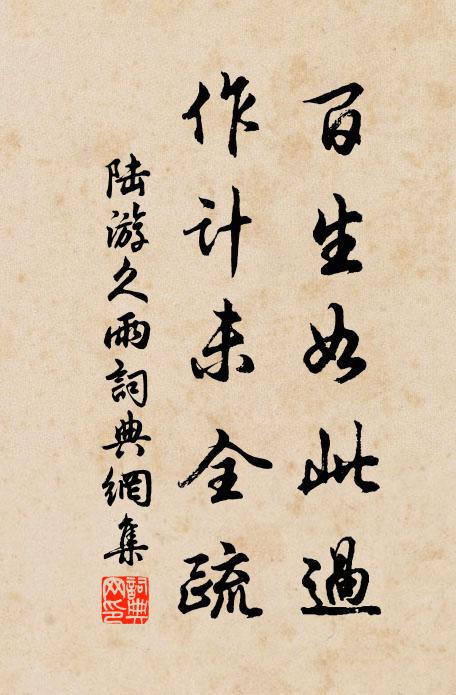 百生如此過
作計未全疏
陸游久雨詞典網集
詞典
網印